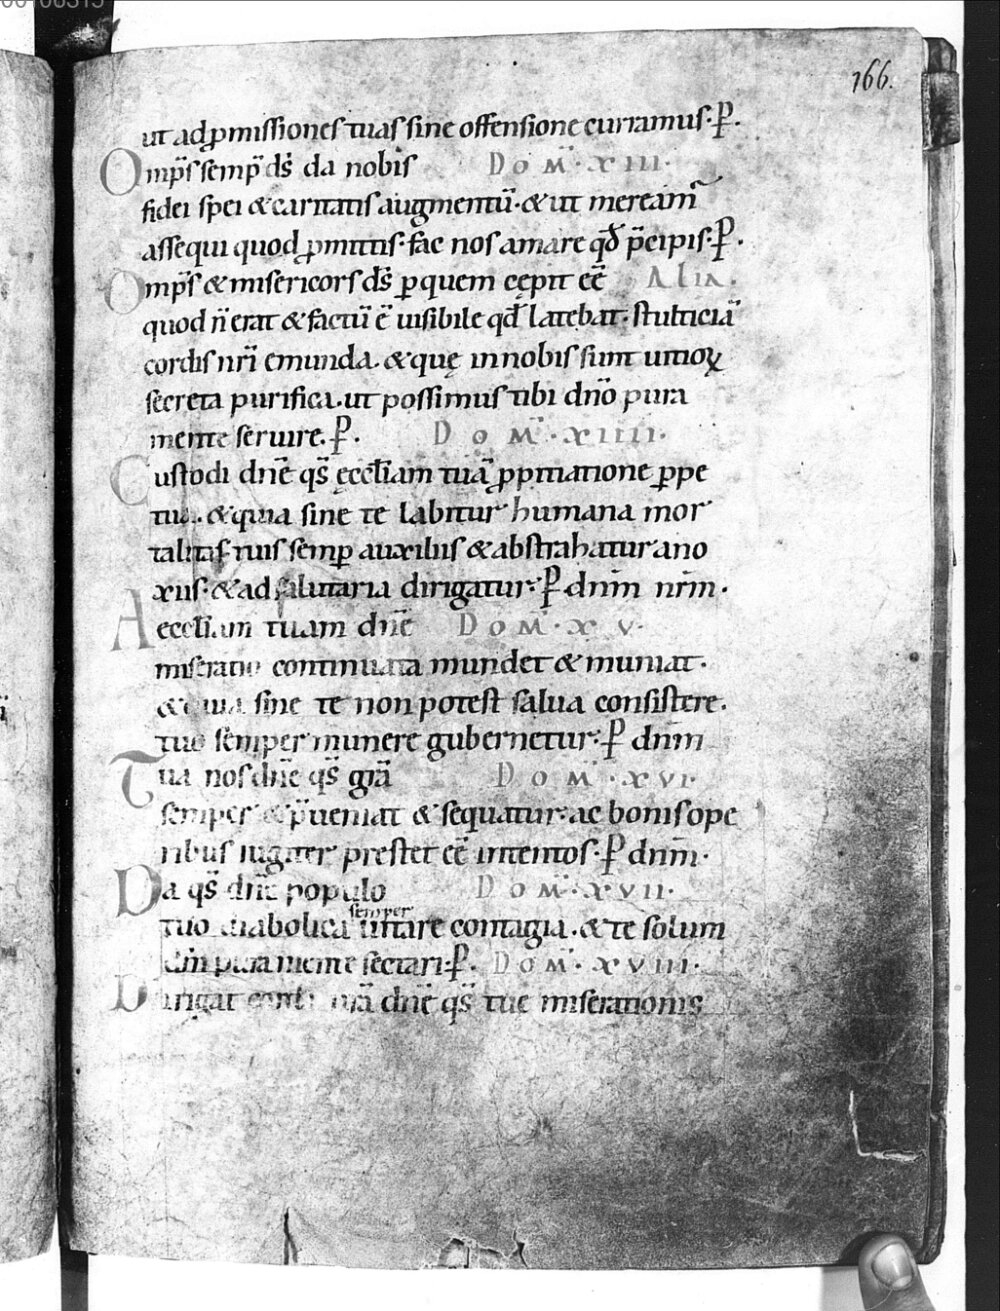 166.
ut ad ꝓmissiones tuas sine offensione curramus. P̱.
Omp̄s semp̄ ds̄ da nobis DOM̄. XIII.
fidei spei &caritatis augmentū. &ut meream̃
assequi quod ꝓmittis. fac nos amare qd̄ p̄cipis. P̱.
Omp̄s &misericors ds̄ ꝑquem cępit eē ALIA.
quod ñ erat &factū ē uisibile qd̄ latebat. stultitiā
cordis nrī emunda. &quę in nobis sunt uitioꝝ
secreta purifica. ut possimus tibi dnō pura
mente seruire. P̱. DOM̄. XIIII.
Custodi dnē qs̄ ęccl̄iam tuā ꝓpitiatione ꝑpe
tua. &quia sine te labitur humana mor
talitas tuis semꝑ auxiliis &abstrahatur a no
xiis. &ad salutaria dirigatur. P̱ dnm̄ nrm̄.
Aeccl̄iam tuam dnē DOM̄. XV.
miseratio continuata mundet &muniat.
&quia sine te non potest salua consistere.
tuo semper munere gubernetur. P̱ dnm̄
Tua nos dnē qs̄ grā DOM̄. XVI.
semper &p̄ueniat &sequatur. ac bonis ope
ribus iugiter prestet eē intentos. P̱ dnm̄.
Da qs̄ dnē populo DOM̄. XVII.
semper
tuo diabolica uitare contagia. &te solum
dm̄ pura mente sectari. P̱. DOM̄. XVIII.
Dirigat corda nrā dnē qs̄ tue miserationis